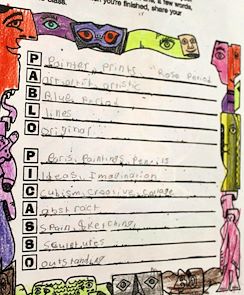 a few words,
you're finished, share your
P Painter, Prints "Rose Period
A artistic
B Blue Period
L lines
O original
P Paris, Paintings, Pencils
I Ideas, Imagination
C Cubism, creative, collage
A abstract
S Spain, sketching
S sculptures
O outstanding